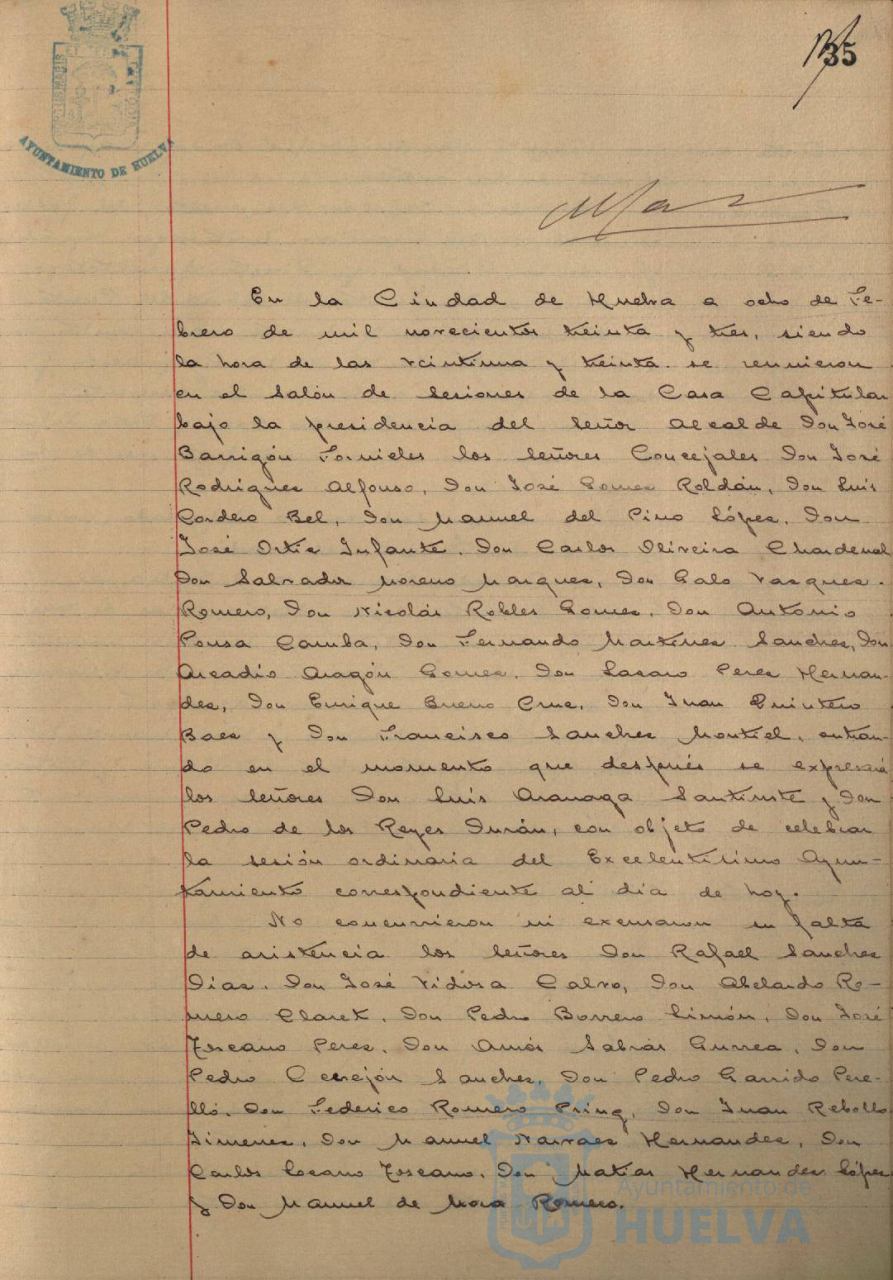 35
AYUNTAMIENTO DE HUELVA
En la Ciudad de Huelva a ocho de Fe-
brero de mil novecientos treinta y tres, siendo
la hora de las veintiuna y treinta. se reunieron
en el salón de sesiones de la Casa Capitular
bajo la presidencia del señor Alcalde Don José
Barrigón Fornieles los señores Concejales Don José
Rodrigues Alfonso, Don José Gomes Roldán, Don Luis
Cordero Bel, Don Manuel del Pino Lópes, Don
José Ortis Infante. Don Carlos Oliveira Chardenal
Don Salvador Moreno Marques, Don Galo Vasques
Romero, Don Nicolás Robles Gomes. Don Antonio
Pousa Camba, Don Fernando Martines Sanches, Don
Arcadio Aragón Gomes. Don Lasaro Peres Hernan-
des, Don Enrique Bueno Crus, Don Juan Quintero
Baes y Don Francisco Sanches Montiel, entran-
do en el momento que después se expresará
los señores Don Luis Aranaga Santiuste y Don
Pedro de los Reyes Durán, con objeto de celebrar
la sesión ordinaria del Excelentísimo Ayun-
tamiento correspondiente al día de hoy.
No concurrieron ni excusaron su falta
de asistencia los señores Don Rafael Sanches
Dias. Don José Vidosa Calvo, Don Abelardo Ro-
mero Claret, Don Pedro Borrero Limón, Don José
Toscano Peres, Don Amós Sabrás Gurrea, Don
Pedro Cerejón Sanches, Don Pedro Garrido Pere-
lló. Don Federico Romero Pring, Don Juan Rebollo
Jimenes, Don Manuel Narvaes Hernandes, Don
Carlos Losano Toscano, Don Matias Hernandes Lópes
y Don Manuel de Mora Romero.
Ayuntamiento de
HUELVA